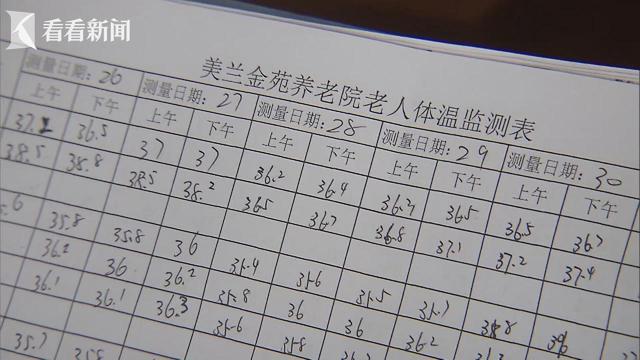 看看新闻
美兰金苑养老院老人体温监测表
测量日期: 26 测量日期: 27 测量日期: 28 测量日期: 29 测量日期: 30
上午 下午 上午 下午 上午 下午 上午 下午 上午 下午
36.5 37 37 36.2 36.4 36.5 36.5 36.7
38.5 38.8 38.5 38.2 36.5 36.7 36.8 37.1 37.2 37.4
35.8 35.8 36 35.4 35.6 35.5 35.7 35.8
36.2 36 36.2 35.8 36 36 36.2
36.1 36.1 36.3 35.6 35.8
35.7 35.8